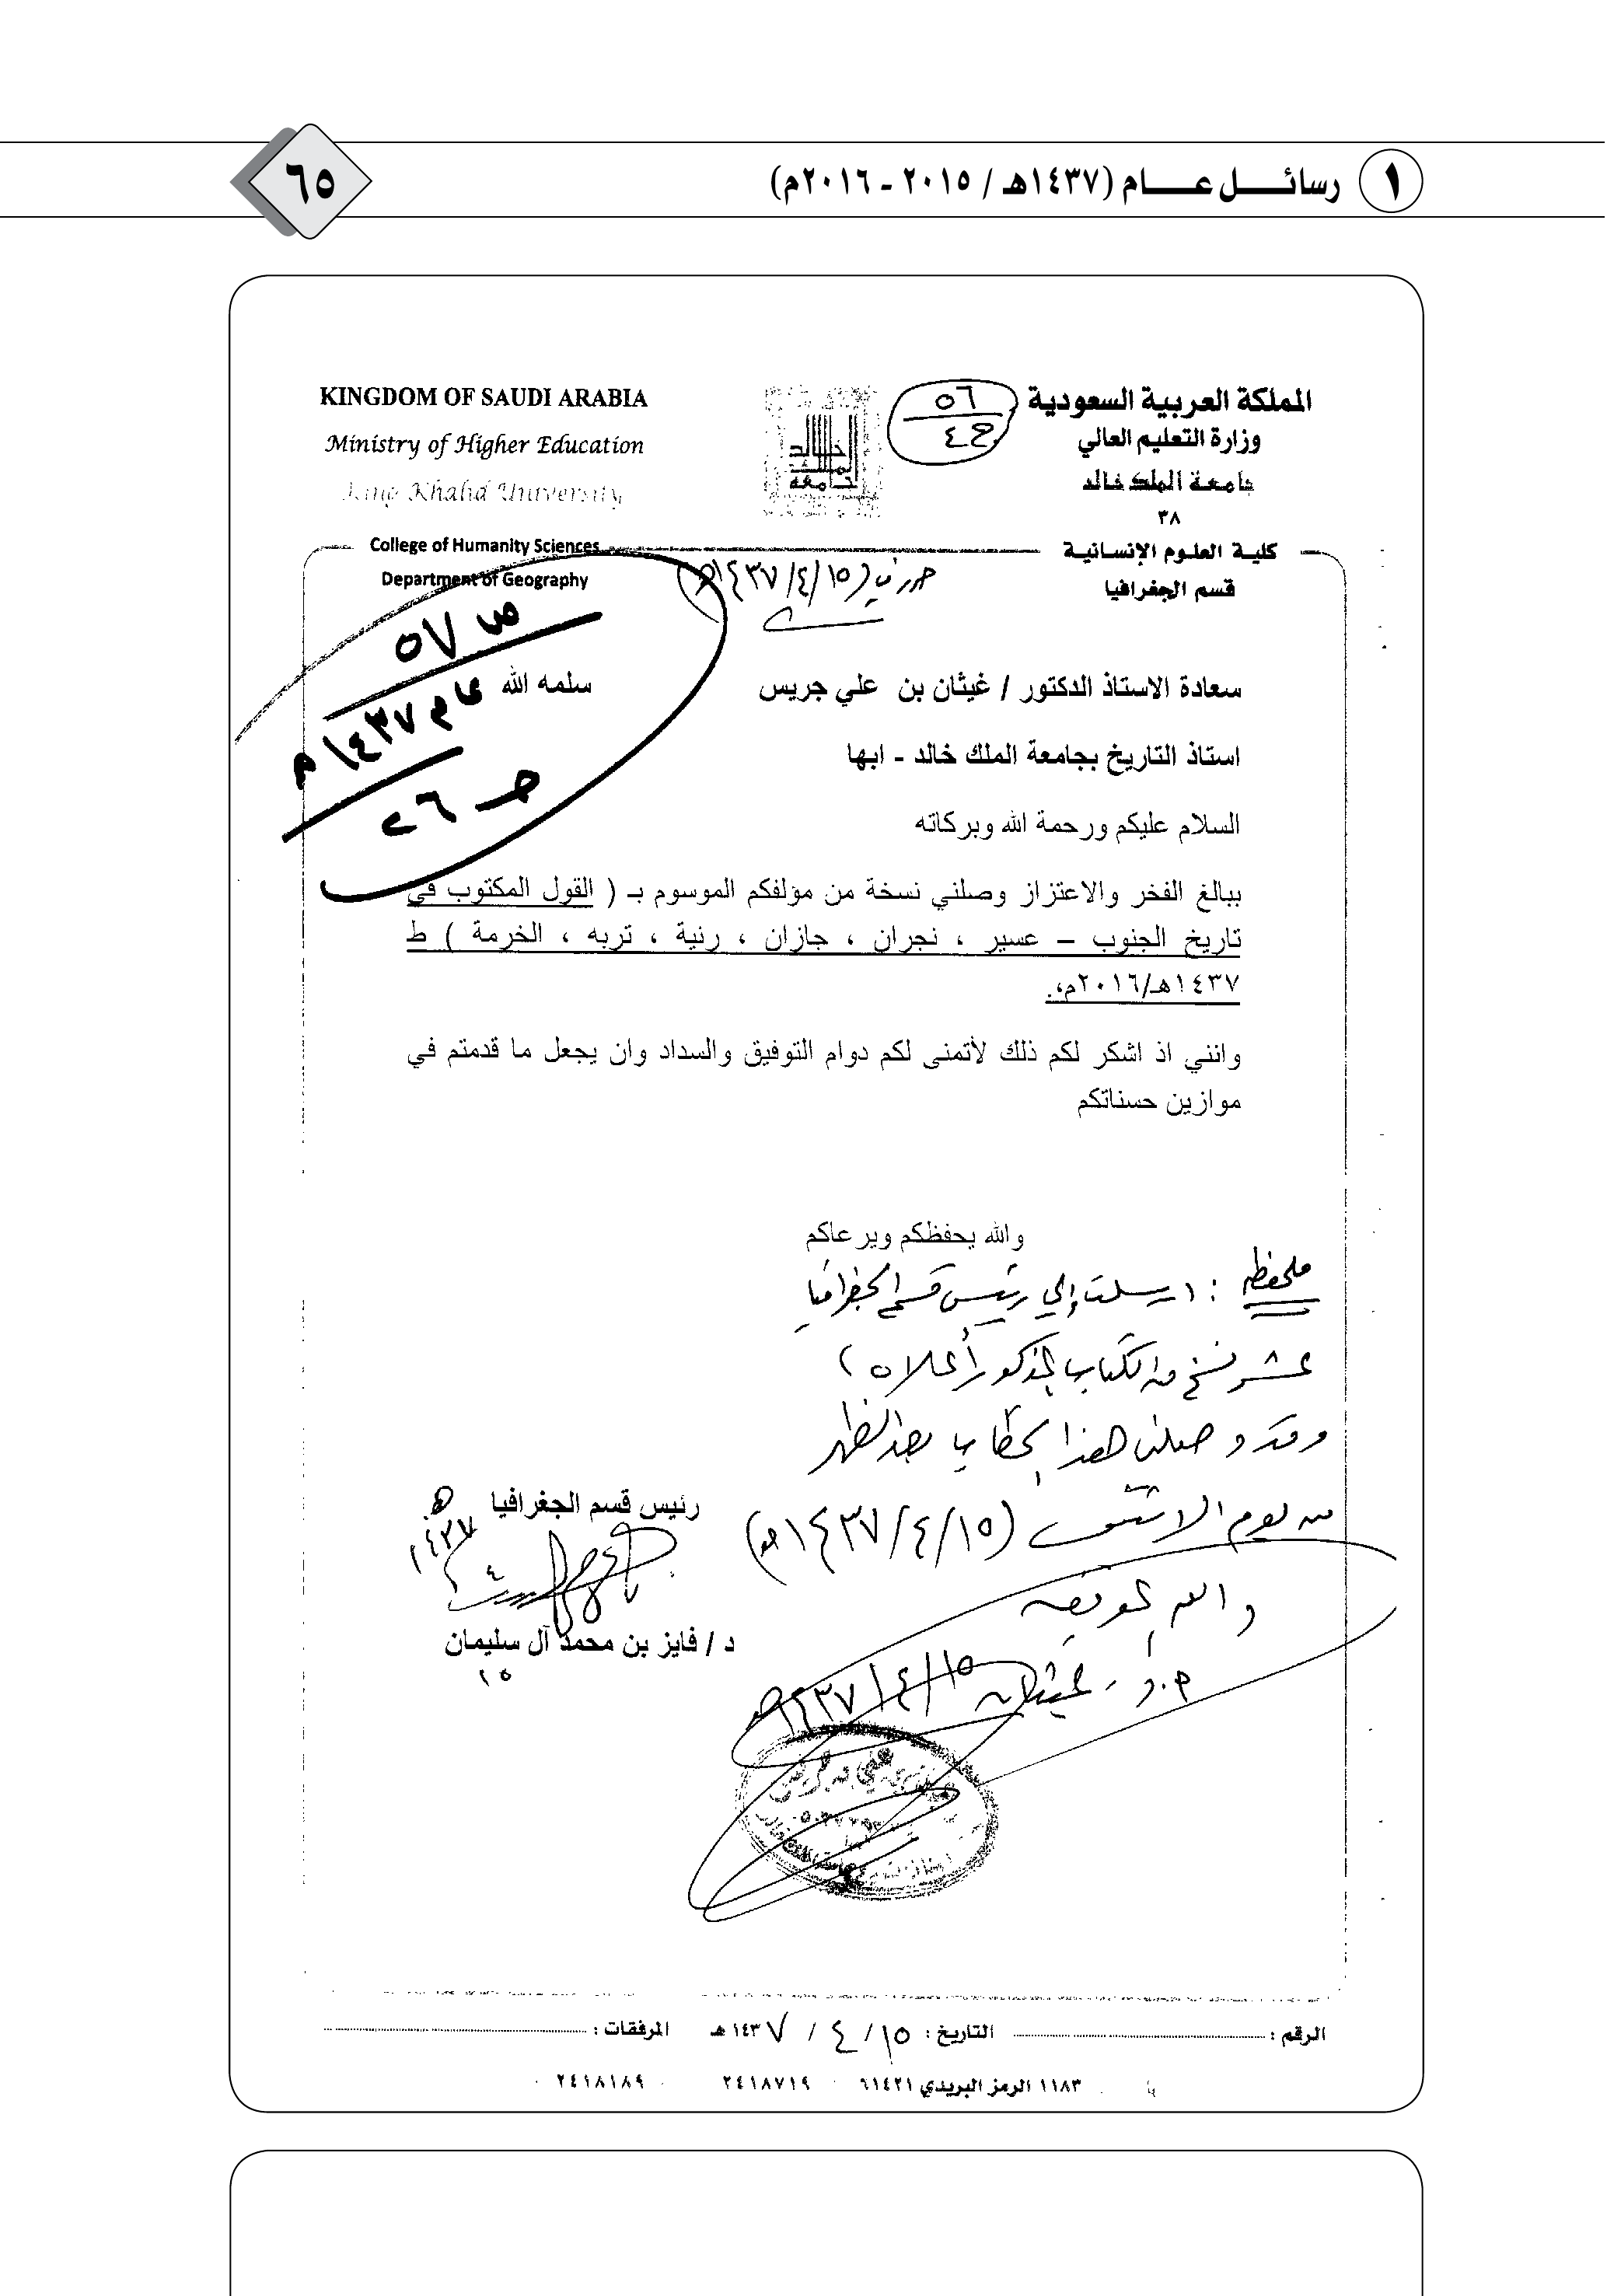 ١ رسائـــل عـــام (١٤٣٧هـ / ٢٠١٥ - ٢٠١٦م)
٦٥
المملكة العربية السعودية
وزارة التعليم العالي
جامعة الملك خالد
٣٨
كلية العلوم الإنسانية
قسم الجغرافيا
٥٦
ح ٤
KINGDOM OF SAUDI ARABIA
Ministry of Higher Education
King Khalid University
College of Humanity Sciences
Department of Geography
(١٤٣٧/٤/١٥هـ)
ص ٥٧
عام ١٤٣٧
سعادة الاستاذ الدكتور / غيثان بن علي جريس سلمه الله
استاذ التاريخ بجامعة الملك خالد - ابها
السلام عليكم ورحمة الله وبركاته
ببالغ الفخر والاعتزاز وصلني نسخة من مؤلفكم الموسوم بـ ( القول المكتوب في
تاريخ الجنوب – عسير ، نجران ، جازان ، رنية ، تربه ، الخرمة ) ط
١٤٣٧هـ/٢٠١٦م،.
وانني اذ اشكر لكم ذلك لأتمنى لكم دوام التوفيق والسداد وان يجعل ما قدمتم في
موازين حسناتكم
والله يحفظكم ويرعاكم
ملحظه : ارسلت إلى رئيس قسم الجغرافيا
عشر نسخ من الكتاب المذكور أعلاه )
وقد وصلني هذا الخطاب بعد الظهر
من يوم الاثنين (١٤٣٧/٤/١٥هـ)
والله الموفق
أ.د. غيثان ١٤٣٧/٤/١٥هـ
رئيس قسم الجغرافيا
١٤٣٧هـ
٤
د / فايز بن محمد آل سليمان
١٥
الرقم : التاريخ : ١٥ / ٤ / ١٤٣٧ هـ المرفقات :
١١٨٣ الرمز البريدي ٦١٤٢١ ٢٤١٨٧١٩ ٢٤١٨١٨٩